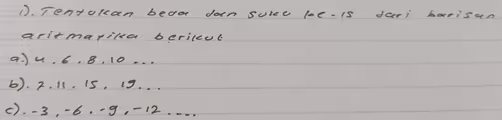 1). Tentukan beda dan suku ke-15 dari barisan
aritmatika berikut
a.) 4, 6, 8, 10 ...
b). 7. 11. 15. 19...
c). -3, -6, -9, -12 ....